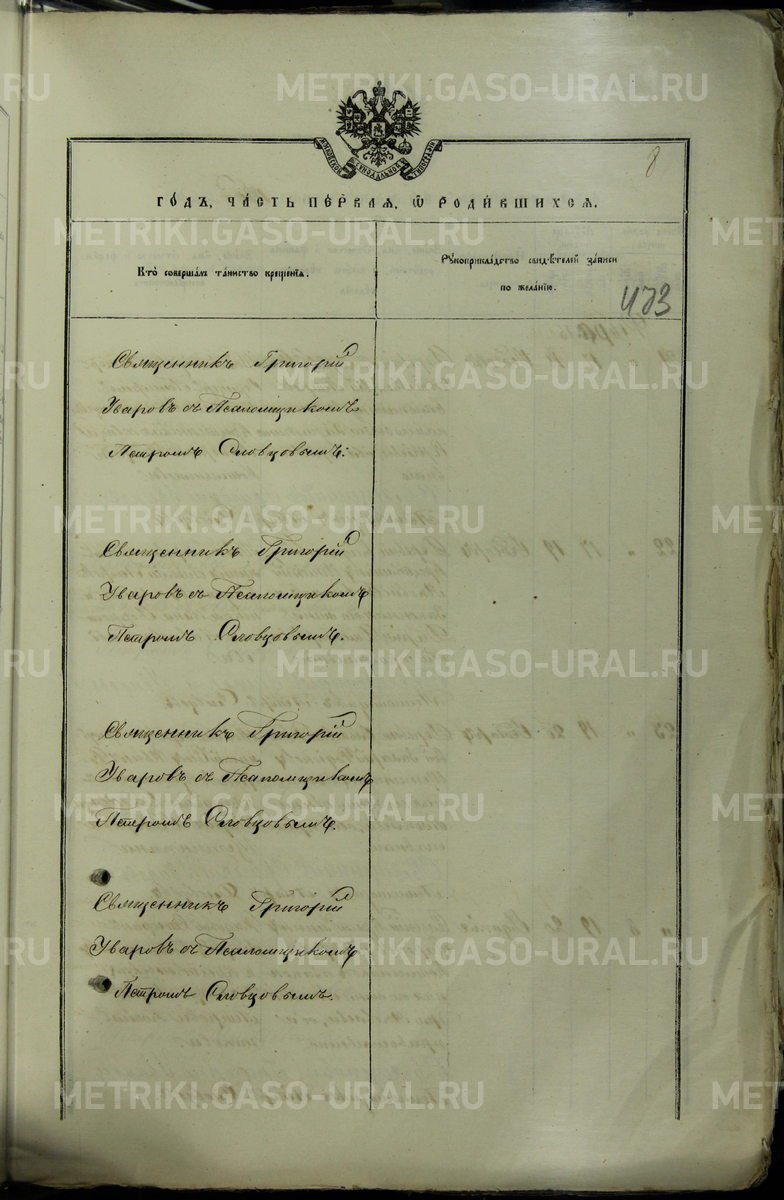 METRIKI.GASO-URAL.RU
8
ГОДЪ, ЧАСТЬ ПЕРВАЯ, Ѡ РОДИВШИХСЯ.
Кто совершалъ таинство крещенія.
Рукоприкладство свидѣтелей записи
по желанію.
473
Священникъ Григорій
Уваровъ съ Псаломщикомъ
Петромъ Словцовымъ.
Священникъ Григорій
Уваровъ съ Псаломщикомъ
Петромъ Словцовымъ.
Священникъ Григорій
Уваровъ съ Псаломщикомъ
Петромъ Словцовымъ.
Священникъ Григорій
Уваровъ съ Псаломщикомъ
Петромъ Словцовымъ.